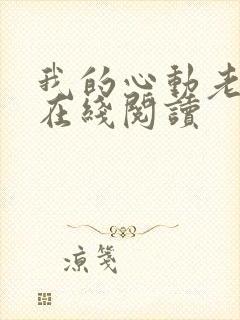 我的心动老
在綫閱讀
凉箋